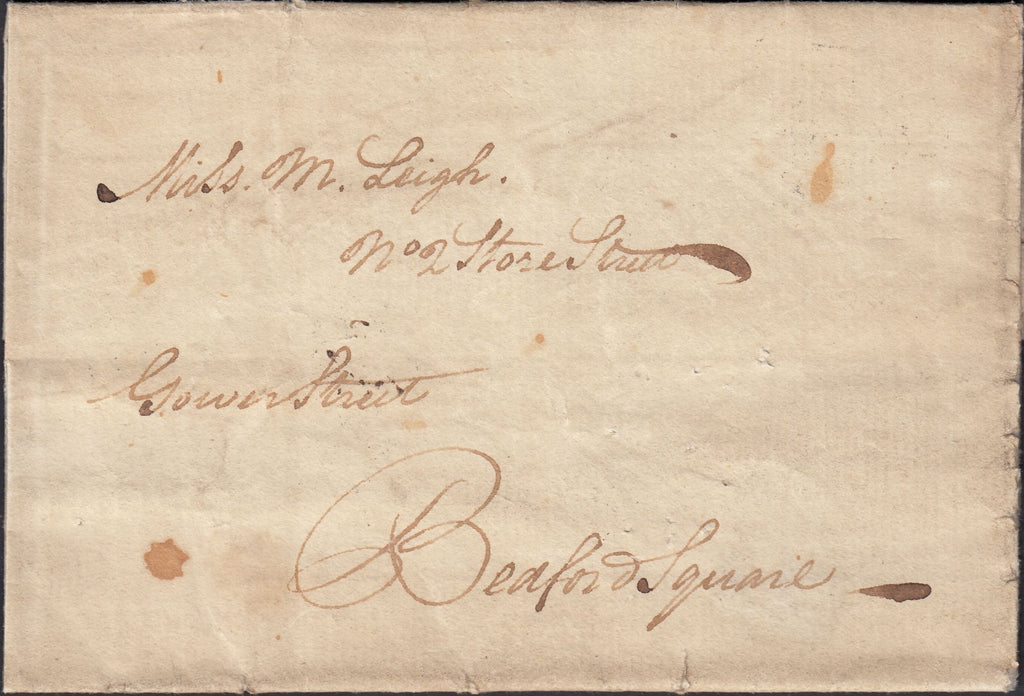 Miss. M. Leigh.
No 2 Store Street
Gower Street
Bedford Square